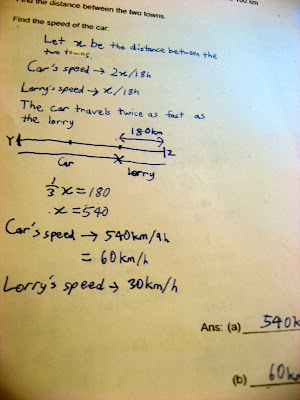 the distance between the two towns.
Find the speed of the car.
Let x be the distance between the
two towns.
Car's speed → 2x/18h
Lorry's speed → x/18h
The car travels twice as fast as
the lorry
180km
Y
Z
Car
Lorry
1/3 x = 180
x = 540
Car's speed → 540km/9h
= 60km/h
Lorry's speed → 30km/h
Ans: (a) 540k
(b) 60km